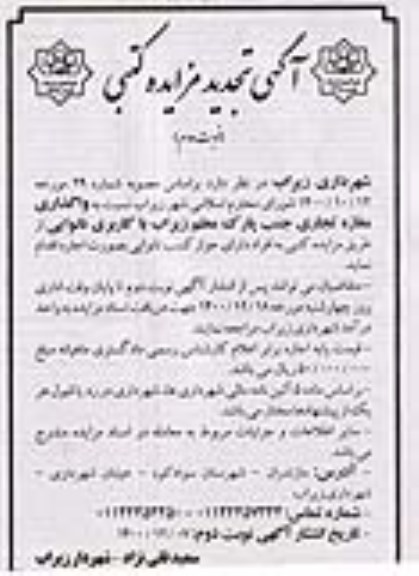 آگهی تجدید مزایده کتبی
(نوبت دوم)
شهرداری زیراب در نظر دارد براساس مصوبه شماره ۲۹ مورخه
۱۴۰۰/۱۰/۱۳ شورای محترم اسلامی شهر زیراب نسبت به واگذاری
مغازه تجاری جنب پارک معلم زیراب با کاربری نانوایی از
طریق مزایده کتبی به افراد دارای جواز کسب نانوایی بصورت اجاره اقدام
نماید.
- متقاضیان می توانند پس از انتشار آگهی نوبت دوم تا پایان وقت اداری
روز چهارشنبه مورخه ۱۴۰۰/۱۲/۱۸ جهت دریافت اسناد مزایده به واحد
درآمد شهرداری زیراب مراجعه نمایند.
- قیمت پایه اجاره برابر اعلام کارشناس رسمی دادگستری ماهانه مبلغ
ریال می باشد.
- براساس ماده ۵ آئین نامه مالی شهرداری ها، شهرداری در رد یا قبول هر
یک از پیشنهادها مختار می باشد.
- سایر اطلاعات و جزئیات مربوط به معامله در اسناد مزایده مندرج
می باشد.
- آدرس: مازندران - شهرستان سوادکوه - خیابان شهرداری -
شهرداری زیراب
- شماره تماس:
- تاریخ انتشار آگهی نوبت دوم: ۱۴۰۰/۱۲/۰۷
سعید تقی نژاد - شهردار زیراب